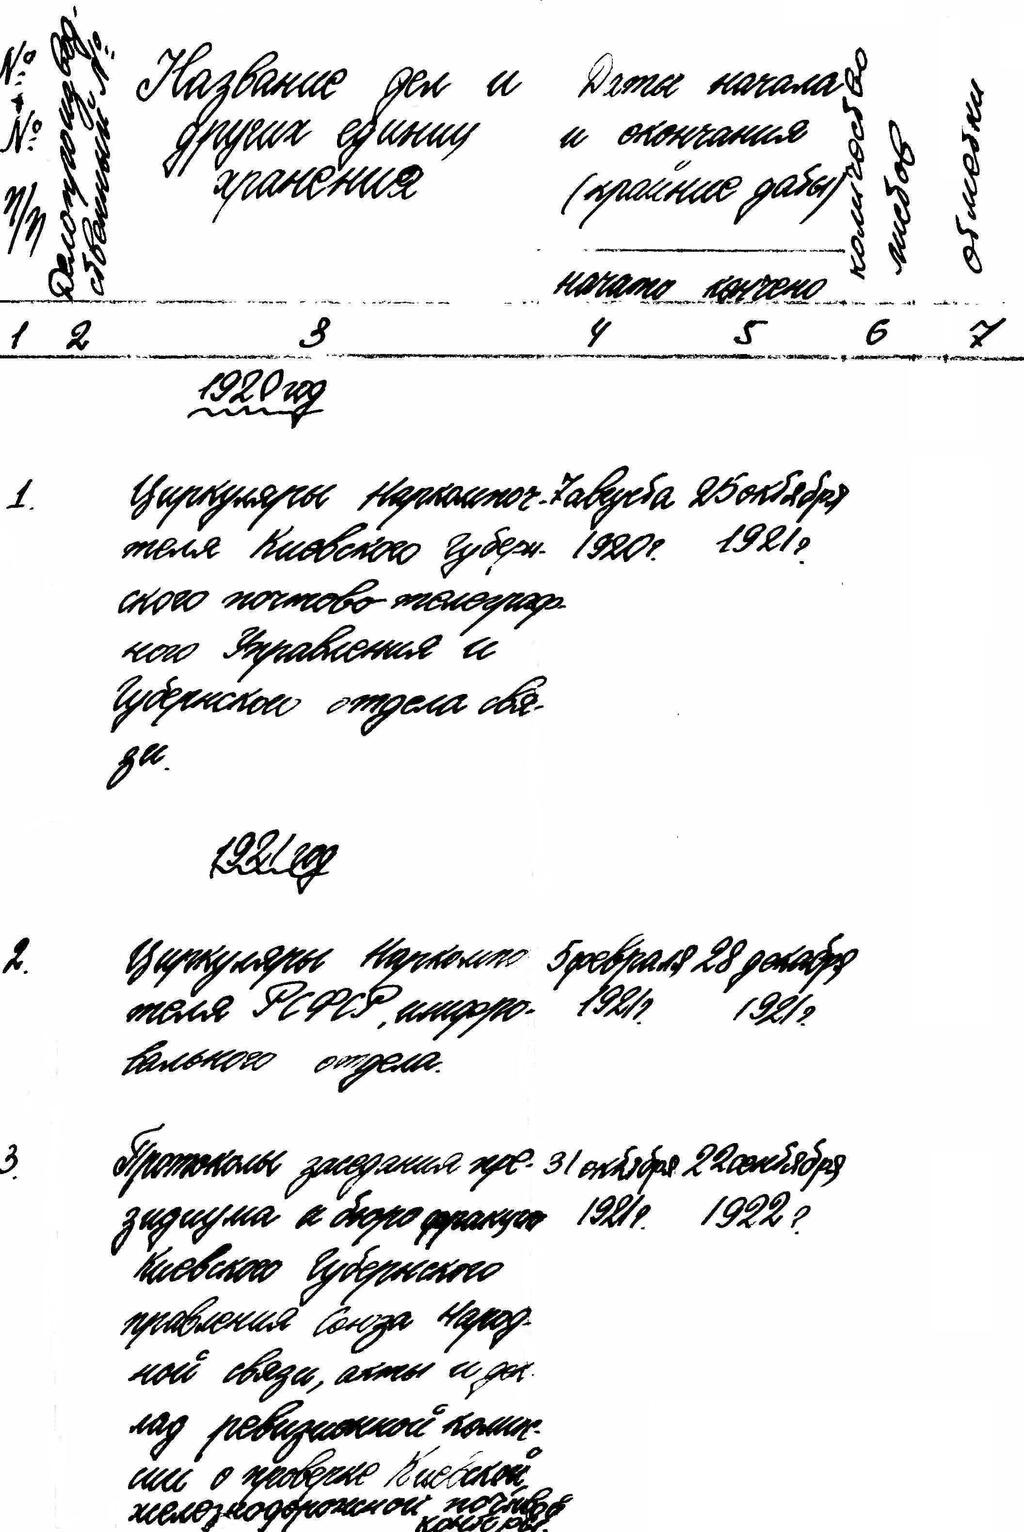 № № п/п
Делопроизвод-
ственный №
Название дел и
других единиц
хранения
Даты начала
и окончания
(крайние даты)
начато кончено
количество
листов
отметки
1 2 3 4 5 6 7
1920 год
1. Циркуляры Наркомпоч- 7 августа 25 октября
теля Киевского Губерн- 1920 г. 1921 г.
ского почтово-телеграф-
ного Управления и
Губернского отдела свя-
зи.
1921 год
2. Циркуляры Наркомпо 5 февраля 28 декабря
теля РСФСР, 1921 г. 1921 г.
вального отдела.
3. Протоколы заседания пре- 31 октября 22 сентября
зидиума и бюро фракции 1921 г. 1922 г.
Киевского Губернского
правления Союза Народ-
ной связи, акты и док-
лад ревизионной комис-
сии о проверке Киевской
железнодорожной почтовой
конторы.